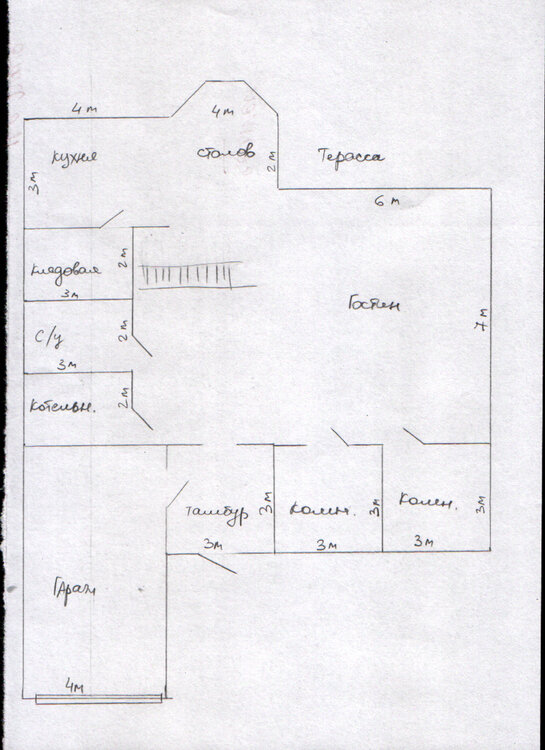 4 м
4 м
кухня
столов
Терасса
3 м
2 м
6 м
кладовая
2 м
3 м
Гостин
7 м
С/у
2 м
3 м
Котельн.
2 м
Тамбур
3 м
3 м
Комн.
3 м
3 м
Комн.
3 м
3 м
Гараж
4м